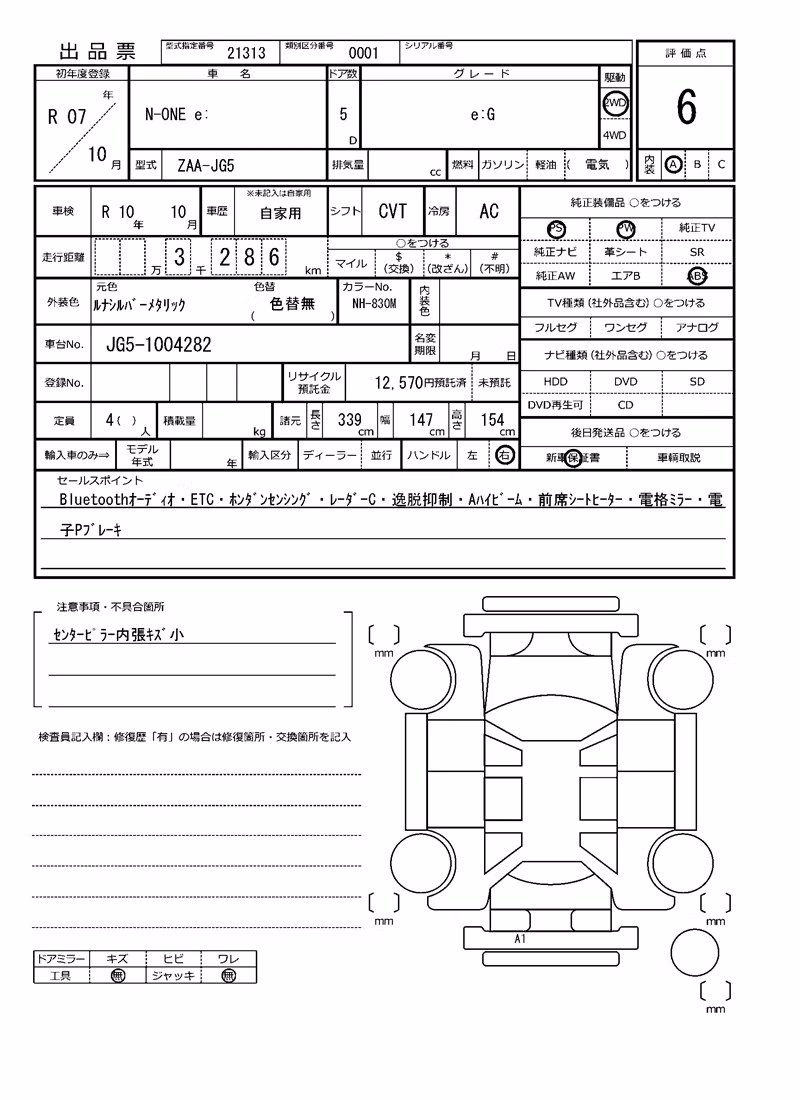 出品票 型式指定番号 21313 類別区分番号 0001 シリアル番号
評価点
初年度登録 車名 ドア数 グレード 駆動
R 07 年 10 月 N-ONE e: 5 D e:G 2WD 4WD
6
型式 ZAA-JG5 排気量 cc 燃料 ガソリン 軽油 ( 電気 ) 内装 A B C
車検 R 10 年 10 月 車歴 ※未記入は自家用 自家用 シフト CVT 冷房 AC
走行距離 万 3 千 2 8 6 km ○をつける マイル $ (交換) * (改ざん) # (不明)
外装色 元色 ルナシルバーメタリック 色替 ( 色替無 ) カラーNo. NH-830M 内装色
車台No. JG5-1004282 名変期限 月 日
登録No. リサイクル預託金 12,570円預託済 未預託
定員 4 ( ) 人 積載量 kg 諸元 長さ 339 cm 幅 147 cm 高さ 154 cm
輸入車のみ⇒ モデル年式 年 輸入区分 ディーラー 並行 ハンドル 左 右
純正装備品 ○をつける
PS PW 純正TV
純正ナビ 革シート SR
純正AW エアB ABS
TV種類 (社外品含む) ○をつける
フルセグ ワンセグ アナログ
ナビ種類 (社外品含む) ○をつける
HDD DVD SD
DVD再生可 CD
後日発送品 ○をつける
新車保証書 車輌取説
セールスポイント
Bluetoothオーディオ・ETC・ホンダンセンシング・レーダーC・逸脱抑制・Aハイビーム・前席シートヒーター・電格ミラー・電
子Pブレーキ
注意事項・不具合箇所
センターピラー内張キズ小
検査員記入欄：修復歴「有」の場合は修復箇所・交換箇所を記入
mm mm
mm mm
A1
mm
ドアミラー キズ ヒビ ワレ
工具 無 ジャッキ 無